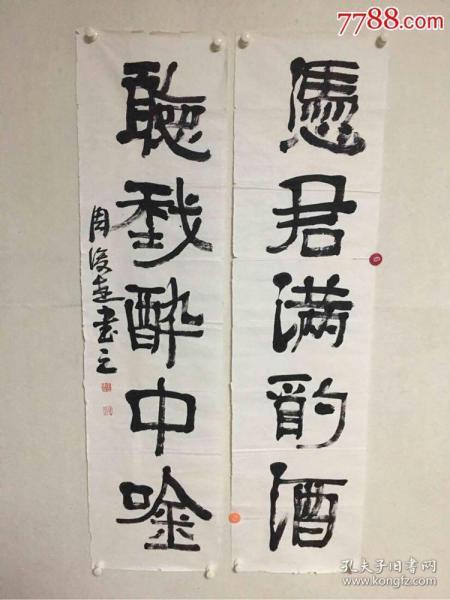 7788.com
憑君满酌酒
聽我醉中唫
周俊杰書之
孔夫子旧书网
www.kongfz.com